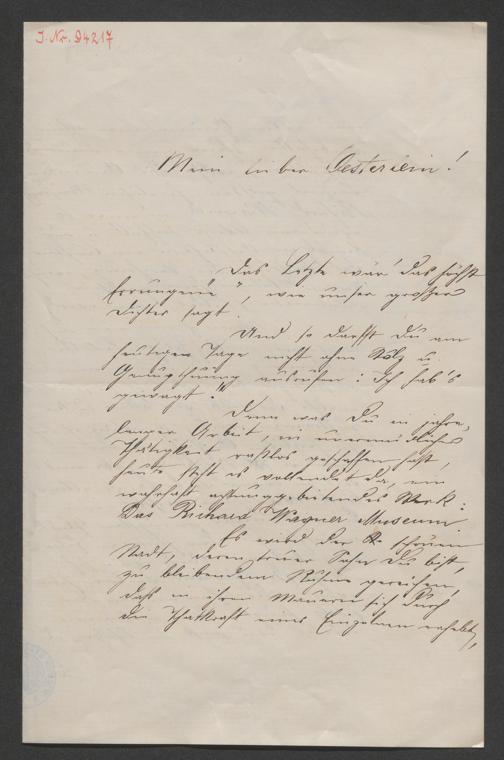 J. Nr. 94217
Mein lieber Oesterlein!
"Das Letzte wär' das höchst
Errungene", wie unser großer
Dichter sagt.
Und so darfst Du am
heutigen Tage nicht ohne Stolz u.
Genugthuung ausrufen: "Ich hab's
gewagt!"
Denn was Du in jahre-
langer Arbeit, in unermüdlicher
Thätigkeit rastlos geschaffen hast,
heute steht es vollendet da, ein
wahrhaft achtunggebietendes Werk:
Das Richard Wagner Museum.
Es wird der schönen
Stadt, deren treuer Sohn Du bist,
zu bleibendem Ruhme gereichen,
daß in ihren Mauern sich durch
die Thatkraft eines Einzelnen erhebt,